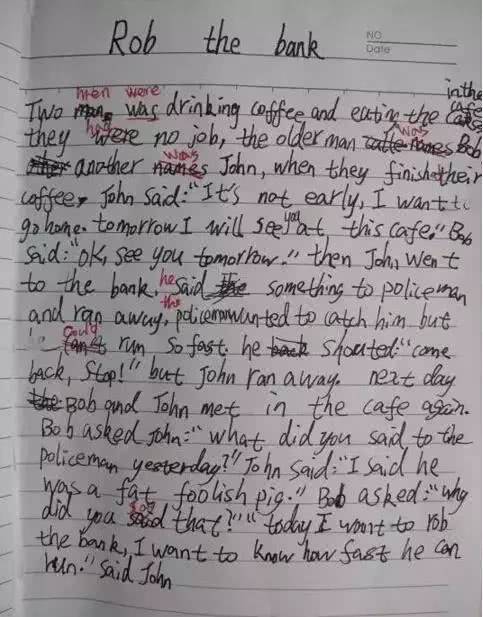 Rob the bank
NO.
Date
men were in the cafe
Two man was drinking coffee and eating the cakes
had was
they were no job, the older man names Bob
was
another names John, when they finish their
coffee, John said: "It's not early, I want to
go home. tomorrow I will see you at this cafe." Bob
said: "OK, see you tomorrow." then John went
to the bank. he said the something to policeman
and ran away, the policeman wanted to catch him but
could
can't run so fast. he back shouted: "come
back, stop!" but John ran away. next day
the Bob and John met in the cafe again.
Bob asked John: "what did you said to the
policeman yesterday?" John said: "I said he
was a fat foolish pig." Bob asked: "why
say
did you said that?" "today I want to rob
the bank, I want to know how fast he can
run." said John